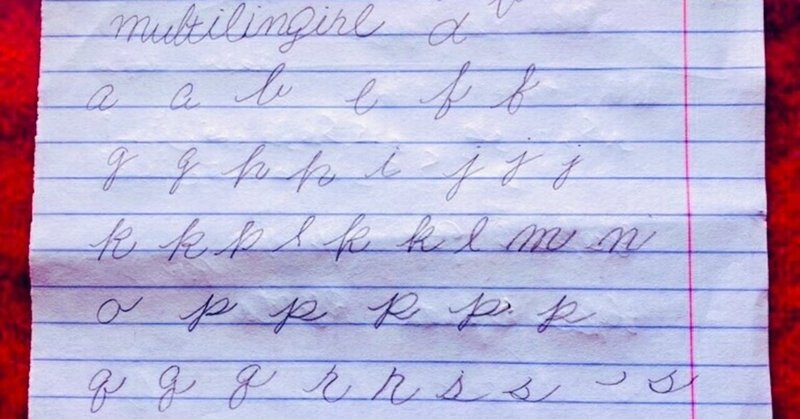 multilingirl α
a a b e f f
g g h h i j j j
k k p l k k l m n
o p p p p p
q g g r r s s s